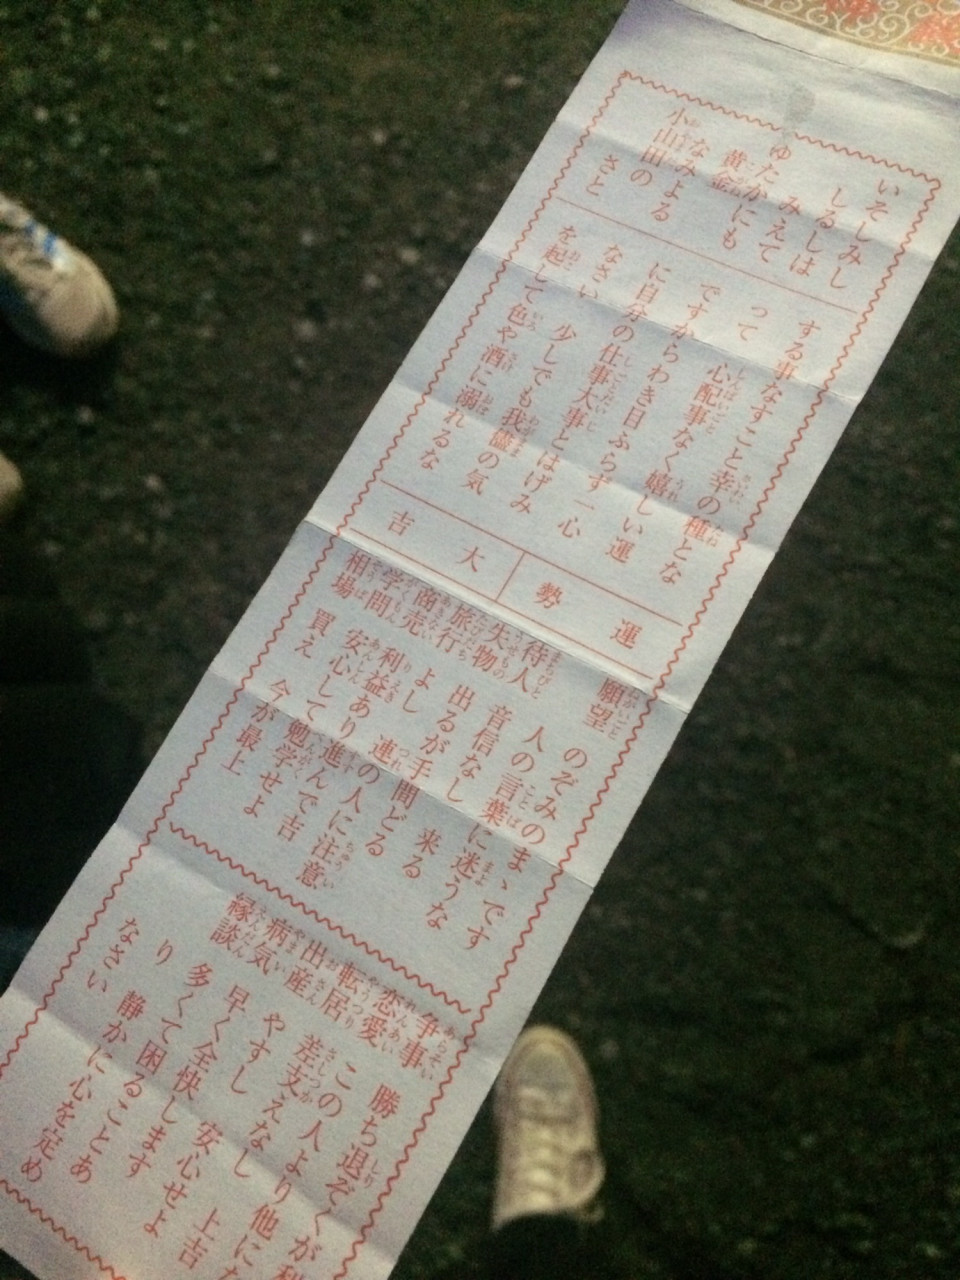 いそしみし
しるしは
みえて
ゆたかにも
黄金
なみよる
小山田の
さと
する事なすこと幸の種とな
って 心配事なく嬉しい運
ですからわき目ふらず一心
に自分の仕事大事とはげみ
なさい 少しでも我儘の気
を起して色や酒に溺れるな
運勢
大吉
願望 のぞみのまゝです
人の言葉に迷うな
待人 音信なし 来る
失物 出るが手間どる
旅行 よし 連の人に注意
商売 利益あり進んで吉
学問 安心して勉学せよ
相場 買え 今が最上
争事 勝ち退ぞくが利
恋愛 この人より他にな
転居 差支えなし 上吉
出産 やすし 安心せよ
病気 早く全快します
縁談 多くて困ることあ
り 静かに心を定め
なさい